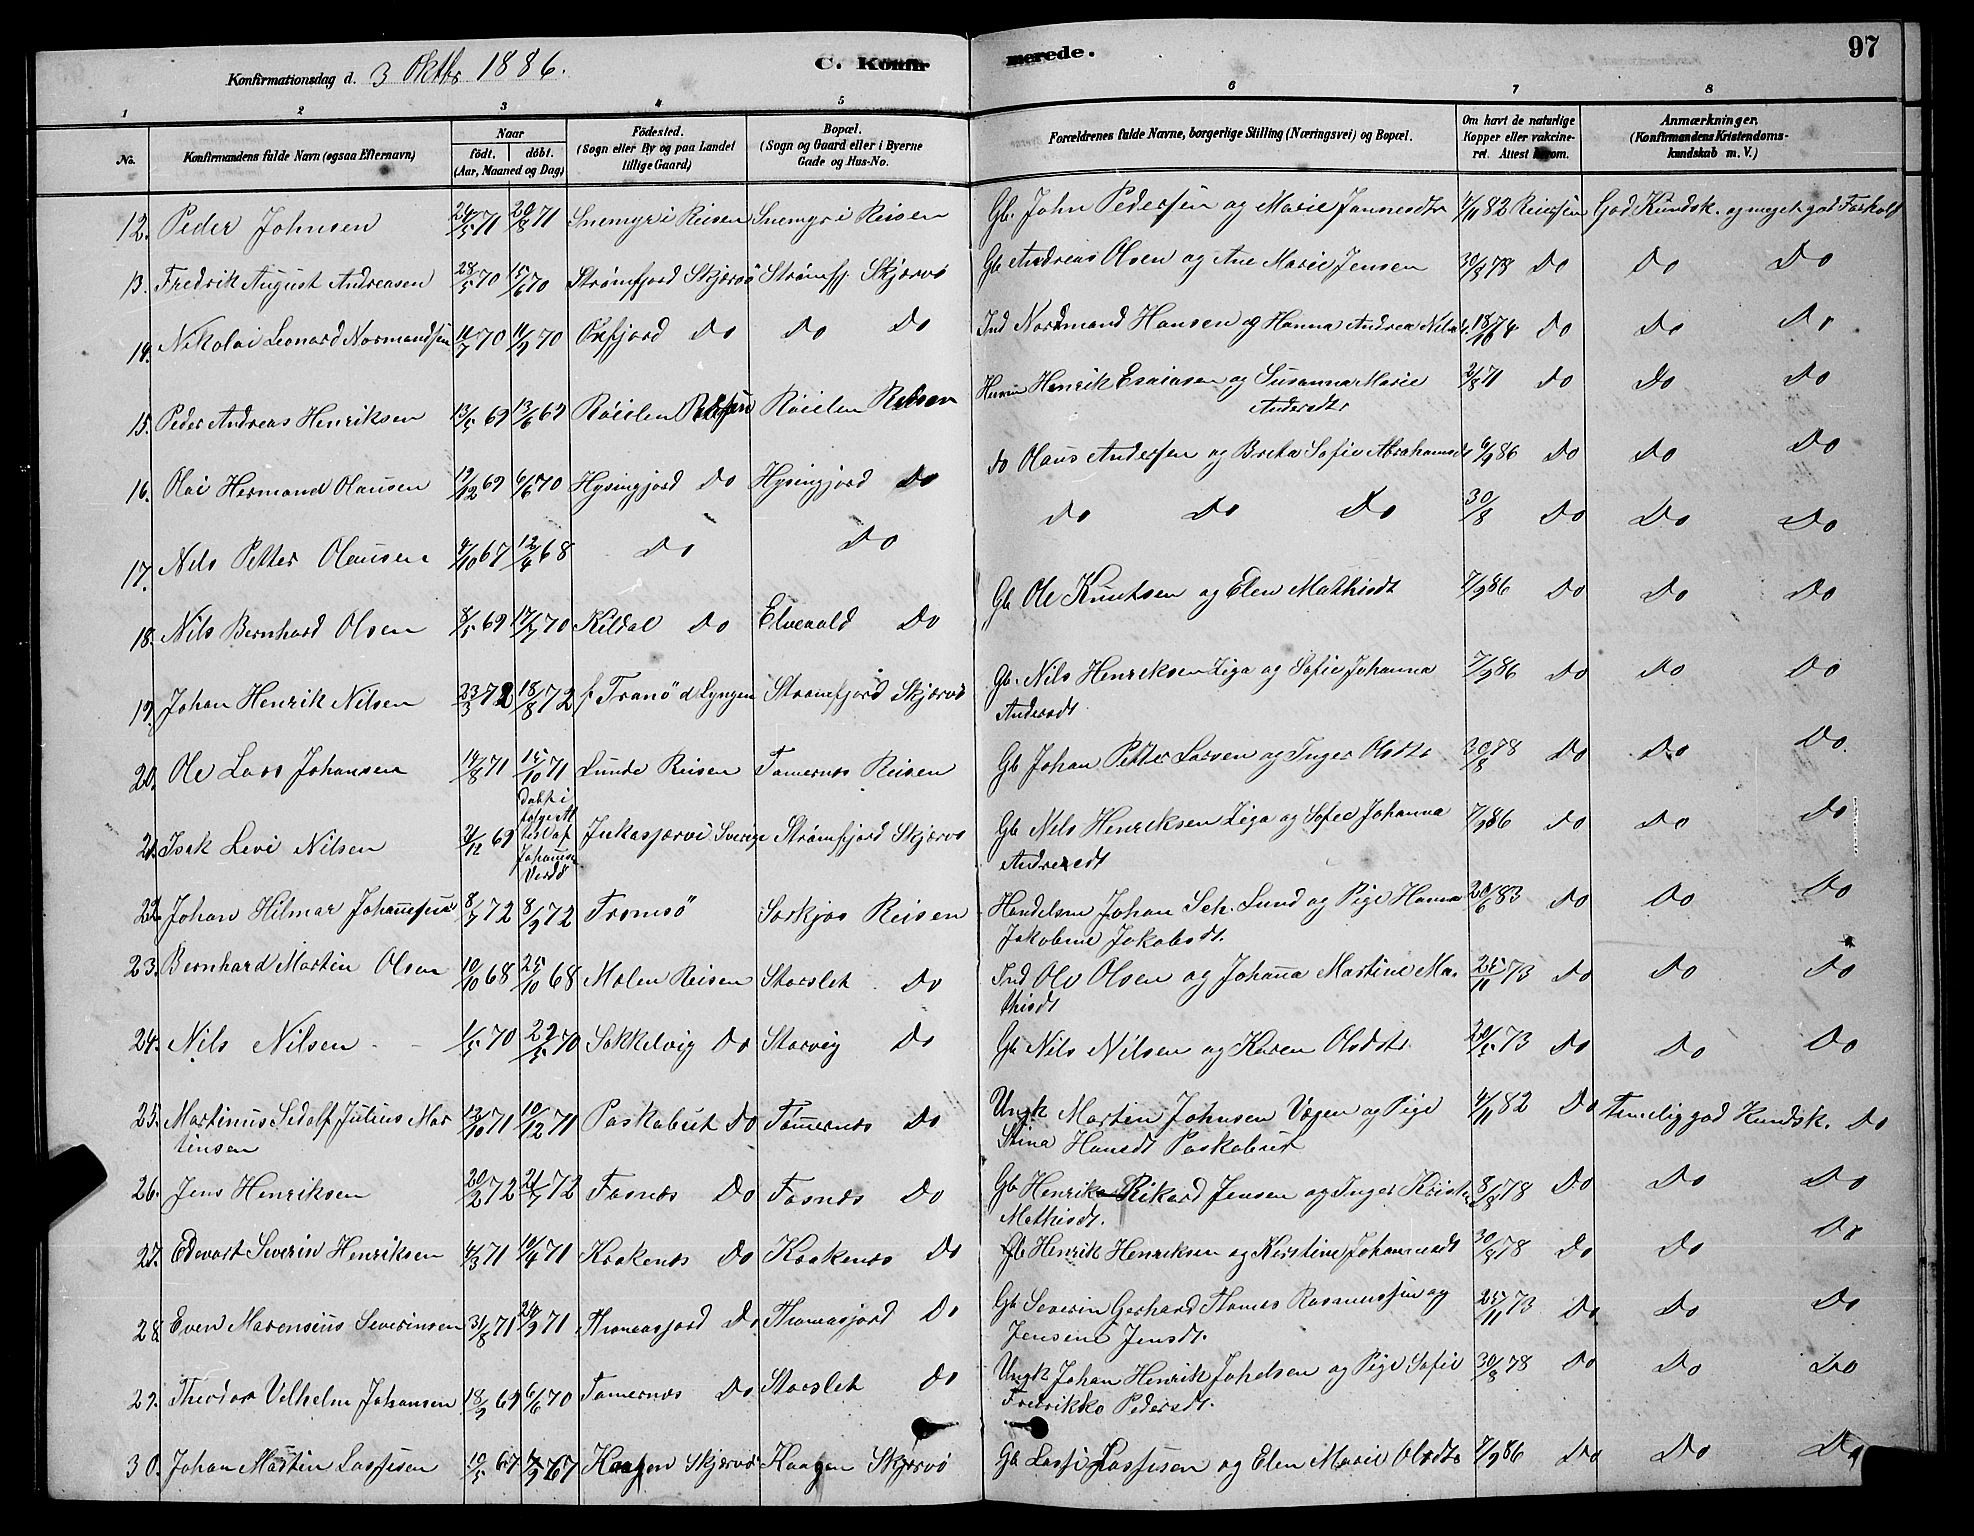 Konfirmationsdag d. 3 Oktbr 1886.
C. Konfir
merede.
97
1 2 3 4 5 6 7 8
No.
Konfirmandens fulde Navn (ogsaa Efternavn)
Naar
født. døbt.
(Aar, Maaned og Dag)
Fødested.
(Sogn eller By og paa Landet
tillige Gaard)
Bopæl.
(Sogn og Gaard eller i Byerne
Gade og Hus-No.
Forældrenes fulde Navne, borgerlige Stilling (Næringsvei) og Bopæl.
Om havt de naturlige
Kopper eller vakcine-
ret. Attest herom.
Anmærkninger,
(Konfirmandens Kristendoms-
kundskab m. V.)
12. Peder Johnsen 24/5 71 20/8 71 Snemyr i Reisen Snemyr i Reisen Gb. John Pedersen og Marie Jannesdtr 4/11 82 Reissen God Kundsk. og meget god Forhold
13. Fredrik August Andreasen 28/5 70 15/6 70 Strømfjord Skjærvö Strömfj. Skjærvö Gb Andreas Olsen og Ane Marie Jensen 30/8 78 Do Do Do
14. Nikolai Leonard Normandsen 16/7 70 11/9 70 Oxfjord Do Do Do Ind Nordmand Hansen og Hanna Andrea Nilsd. 18/10 74 Do Do Do
15. Peder Andreas Henriksen 13/5 69 13/6 69 Röielen Reisen Röielen Reisen Henrik Esaiasen og Susanna Marie
Andersdtr 2/8 71 Do Do Do
16. Olai Hermand Olausen 12/12 69 6/6 70 Hysingjord Do Hysingjord Do do Olaus Andersen og Breta Sofie Abrahamsd 6/9 86 Do Do Do
17. Nils Petter Olausen 4/10 67 12/4 68 Do Do Do Do Do 30/8 Do Do Do
18. Nils Bernhard Olsen 8/5 69 17/7 70 Kildal Do Elvevold Do Gb Ole Knutsen og Elen Mathisdt 7/9 86 Do Do Do
19. Johan Henrik Nilsen 23/3 72 18/8 72 f Tranö d Lyngen Strömfjord Skjærvö Gb. Nils Henriksen Ziga og Sofie Johanna
Andersdt 7/9 86 Do Do Do
20. Ole Lars Johansen 14/8 71 15/10 71 Lunde Reisen Tamernes Reisen Gb Johan Petter Larsen og Inger Olsdtr 30/8 78 Do Do Do
21. Isak Levi Nilsen 21/12 69 Døbt i
følge At
test af
Johannes
Jukasjærvi Sverige Strömfjord Skjærvö Gb Nils Henriksen Ziga og Sofie Johanna
Andersdt 7/9 86 Do Do Do
22. Johan Hilmar Johannsen 8/7 72 8/9 72 Tromsö Sorkjos Reisen Handelsm Johan Sch. Lund og Pige Hanna
Jakobine Jakobsdt. 20/6 83 Do Do Do
23. Bernhard Martin Olsen 10/10 68 25/10 68 Molen Reisen Storslet Do Ind Ole Olsen og Johanna Martine Ma-
thisdt 25/11 73 Do Do Do
24. Nils Nilsen 1/5 70 22/5 70 Sokkelvig Do Storvig Do Gb Nils Nilsen og Karen Olsdtr 20/5 73 Do Do Do
25. Martinus Sedolf Julius Mar
tinsen 13/10 71 10/12 71 Paskabut Do Tamernes Do Ungk Martin Johnsen Vægen og Pige
Stina Hansdt Paskabut 4/11 82 Do Temelig god Kundsk. Do
26. Jens Henriksen 20/2 72 21/7 72 Fosnes Do Fosnes Do Gb Henrik Rikard Jensen og Inger Krist
Mathisdt. 8/8 78 Do Do Do
27. Edevart Severin Henriksen 4/3 71 10/4 71 Kaakenes Do Kaakenes Do Gb Henrik Henriksen og Kirstine Johannesdt 30/8 78 Do Do Do
28. Even Marensius Severinsen 31/8 71 24/9 71 Thomasjord Do Thomasjord Do Gb Severin Gerhard Thomes Rasmussen og
Jensine Jensdt. 25/11 73 Do Do Do
29. Theodor Velhelm Johansen 18/9 69 6/6 70 Tamernes Do Storslet Do Ungk Johan Henrik Johelsen og Pige Sofie
Fredrikke Pedersdt. 30/8 78 Do Do Do
30. Johan Martin Lassesen 19/5 67 7/9 67 Kaagen Skjervö Kaagen Skjervö Gb Lassi Lassesen og Elen Marie Olsdtr 7/9 86 Do Do Do